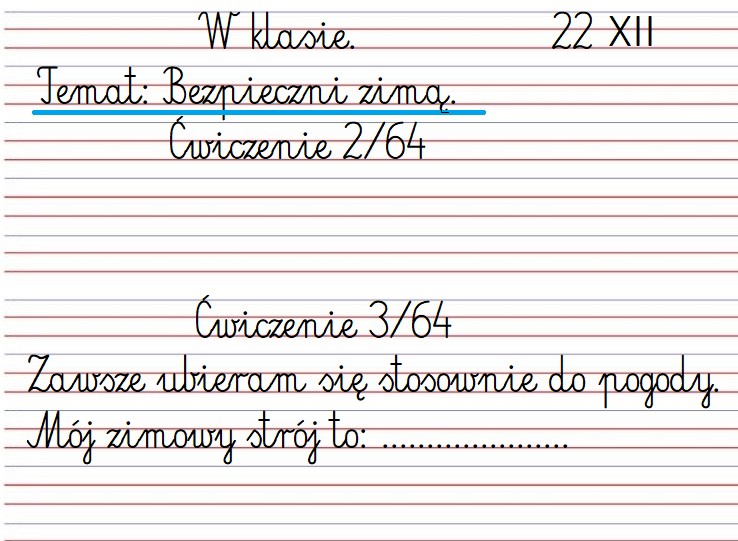 W klasie. 22 XII
Temat: Bezpieczni zimą.
Ćwiczenie 2/64
Ćwiczenie 3/64
Zawsze ubieram się stosownie do pogody.
Mój zimowy strój to: .....................